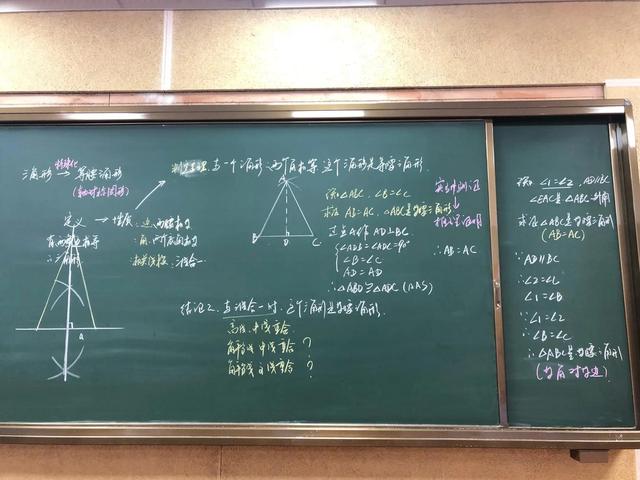 特殊化
三角形 → 等腰三角形
(轴对称图形)
定义 → 性质:
有两边相等
的三角形
边: 两腰相等
角: 两个底角相等
三线合一
a
有一个三角形两个角相等 这个三角形是等腰三角形.
A
B D C
△ABC, ∠B=∠C
求证 AB=AC, △ABC是等腰三角形
过点A作 AD⊥BC.
∠ADB=∠ADC=90°
∠B=∠C
AD=AD
∴ △ABD≌△ADC (AAS)
∴ AB=AC
结论2. 当三线合一时, 这个三角形是等腰三角形.
高线, 中线重合
角平分线 中线重合 ?
角平分线 高线重合 ?
∠1=∠2, AD∥BC
∠EAC是△ABC一外角
求证 △ABC是等腰三角形
(AB=AC)
∵ AD∥BC
∴ ∠2=∠C
∠1=∠B
∵ ∠1=∠2
∴ ∠B=∠C
∴ △ABC是等腰三角形
(等角对等边)